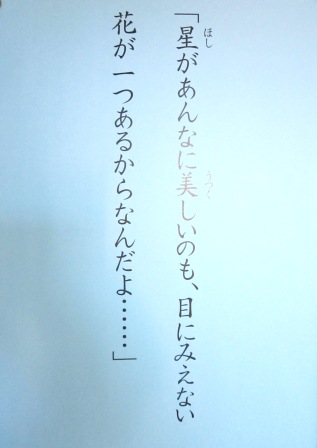 「星があんなに美しいのも、目にみえない
花が一つあるからなんだよ……」